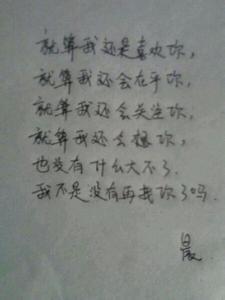 就算我还是喜欢你，
就算我还会在乎你，
就算我还会关注你，
就算我还会想你，
也没有什么大不了．
我不是没有再找你了吗．
晨